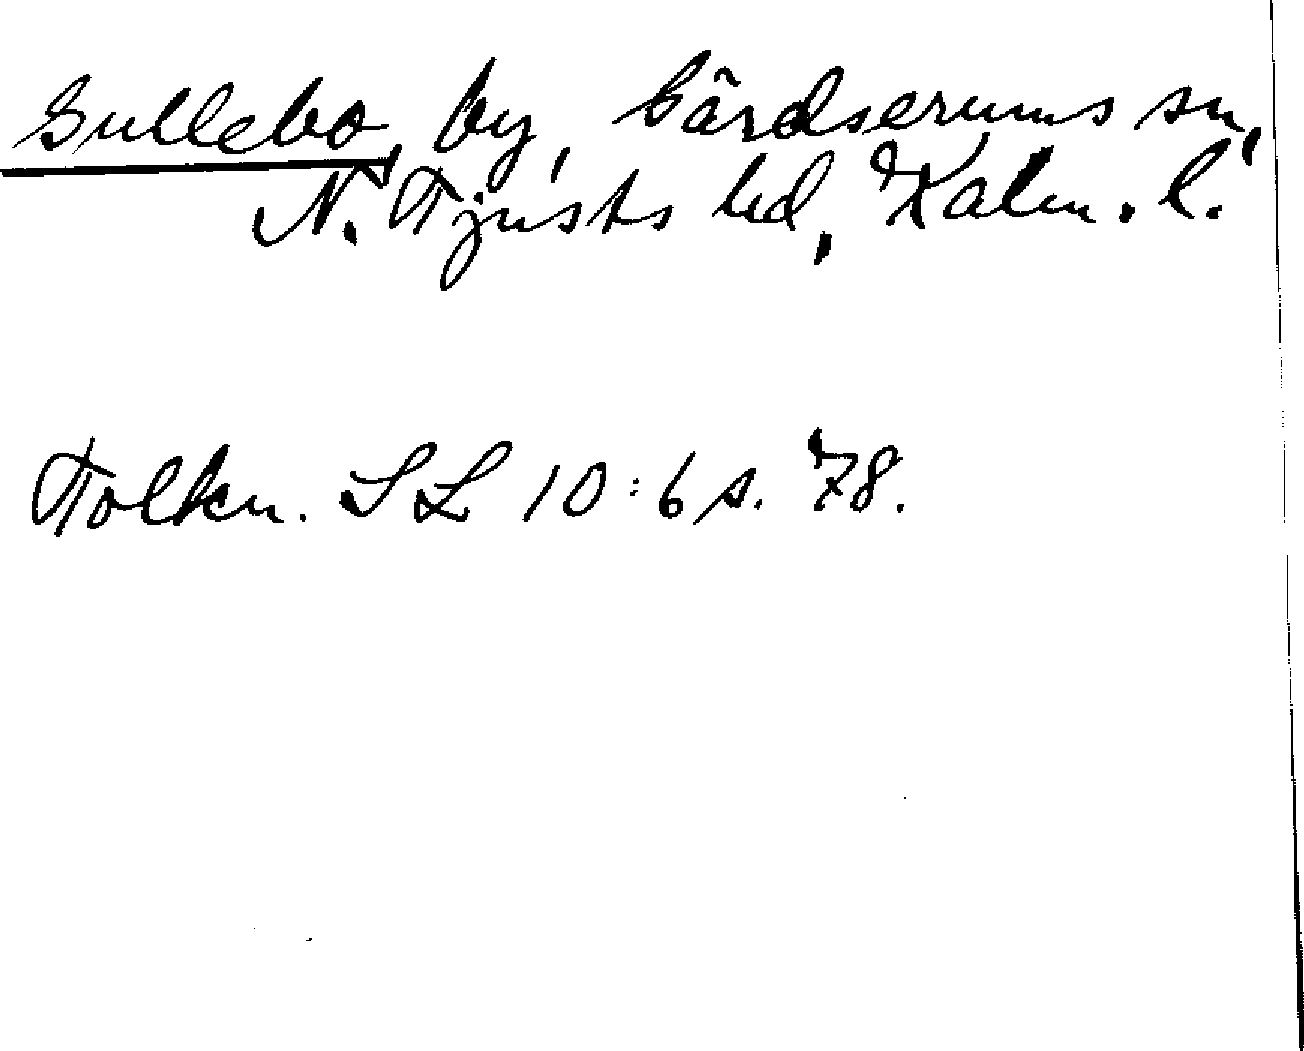 Gullebo, by, Gärdserums sn,
N. Tjusts hd, Kalm. l.
Tolkn. SL 10:6 s. 78.